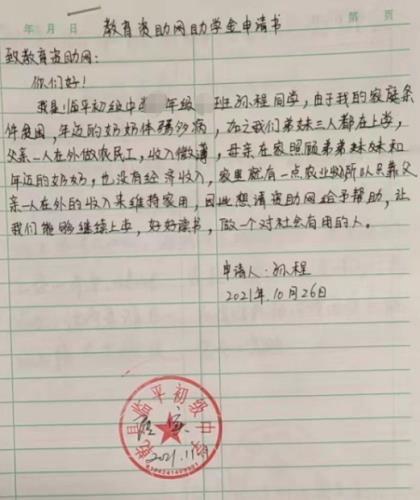 年 月 日 第 页
教育资助网助学金申请书
致教育资助网:
你们好!
我是临平初级中 年级 班孙程同学,由于我的家庭条
件贫困,年迈的奶奶体弱多病,加之我们弟妹三人都在上学,
父亲一人在外做农民工,收入微薄,母亲在家照顾弟弟妹妹和
年迈的奶奶,也没有经济收入,家里就有一点农业物所以只靠父
亲一人在外的收入来维持家用,因此想请资助网给予帮助,让
我们能够继续上学,好好读书,做一个对社会有用的人。
申请人:孙程
2021年10月26日
县临平初级中学
属实
2021.11